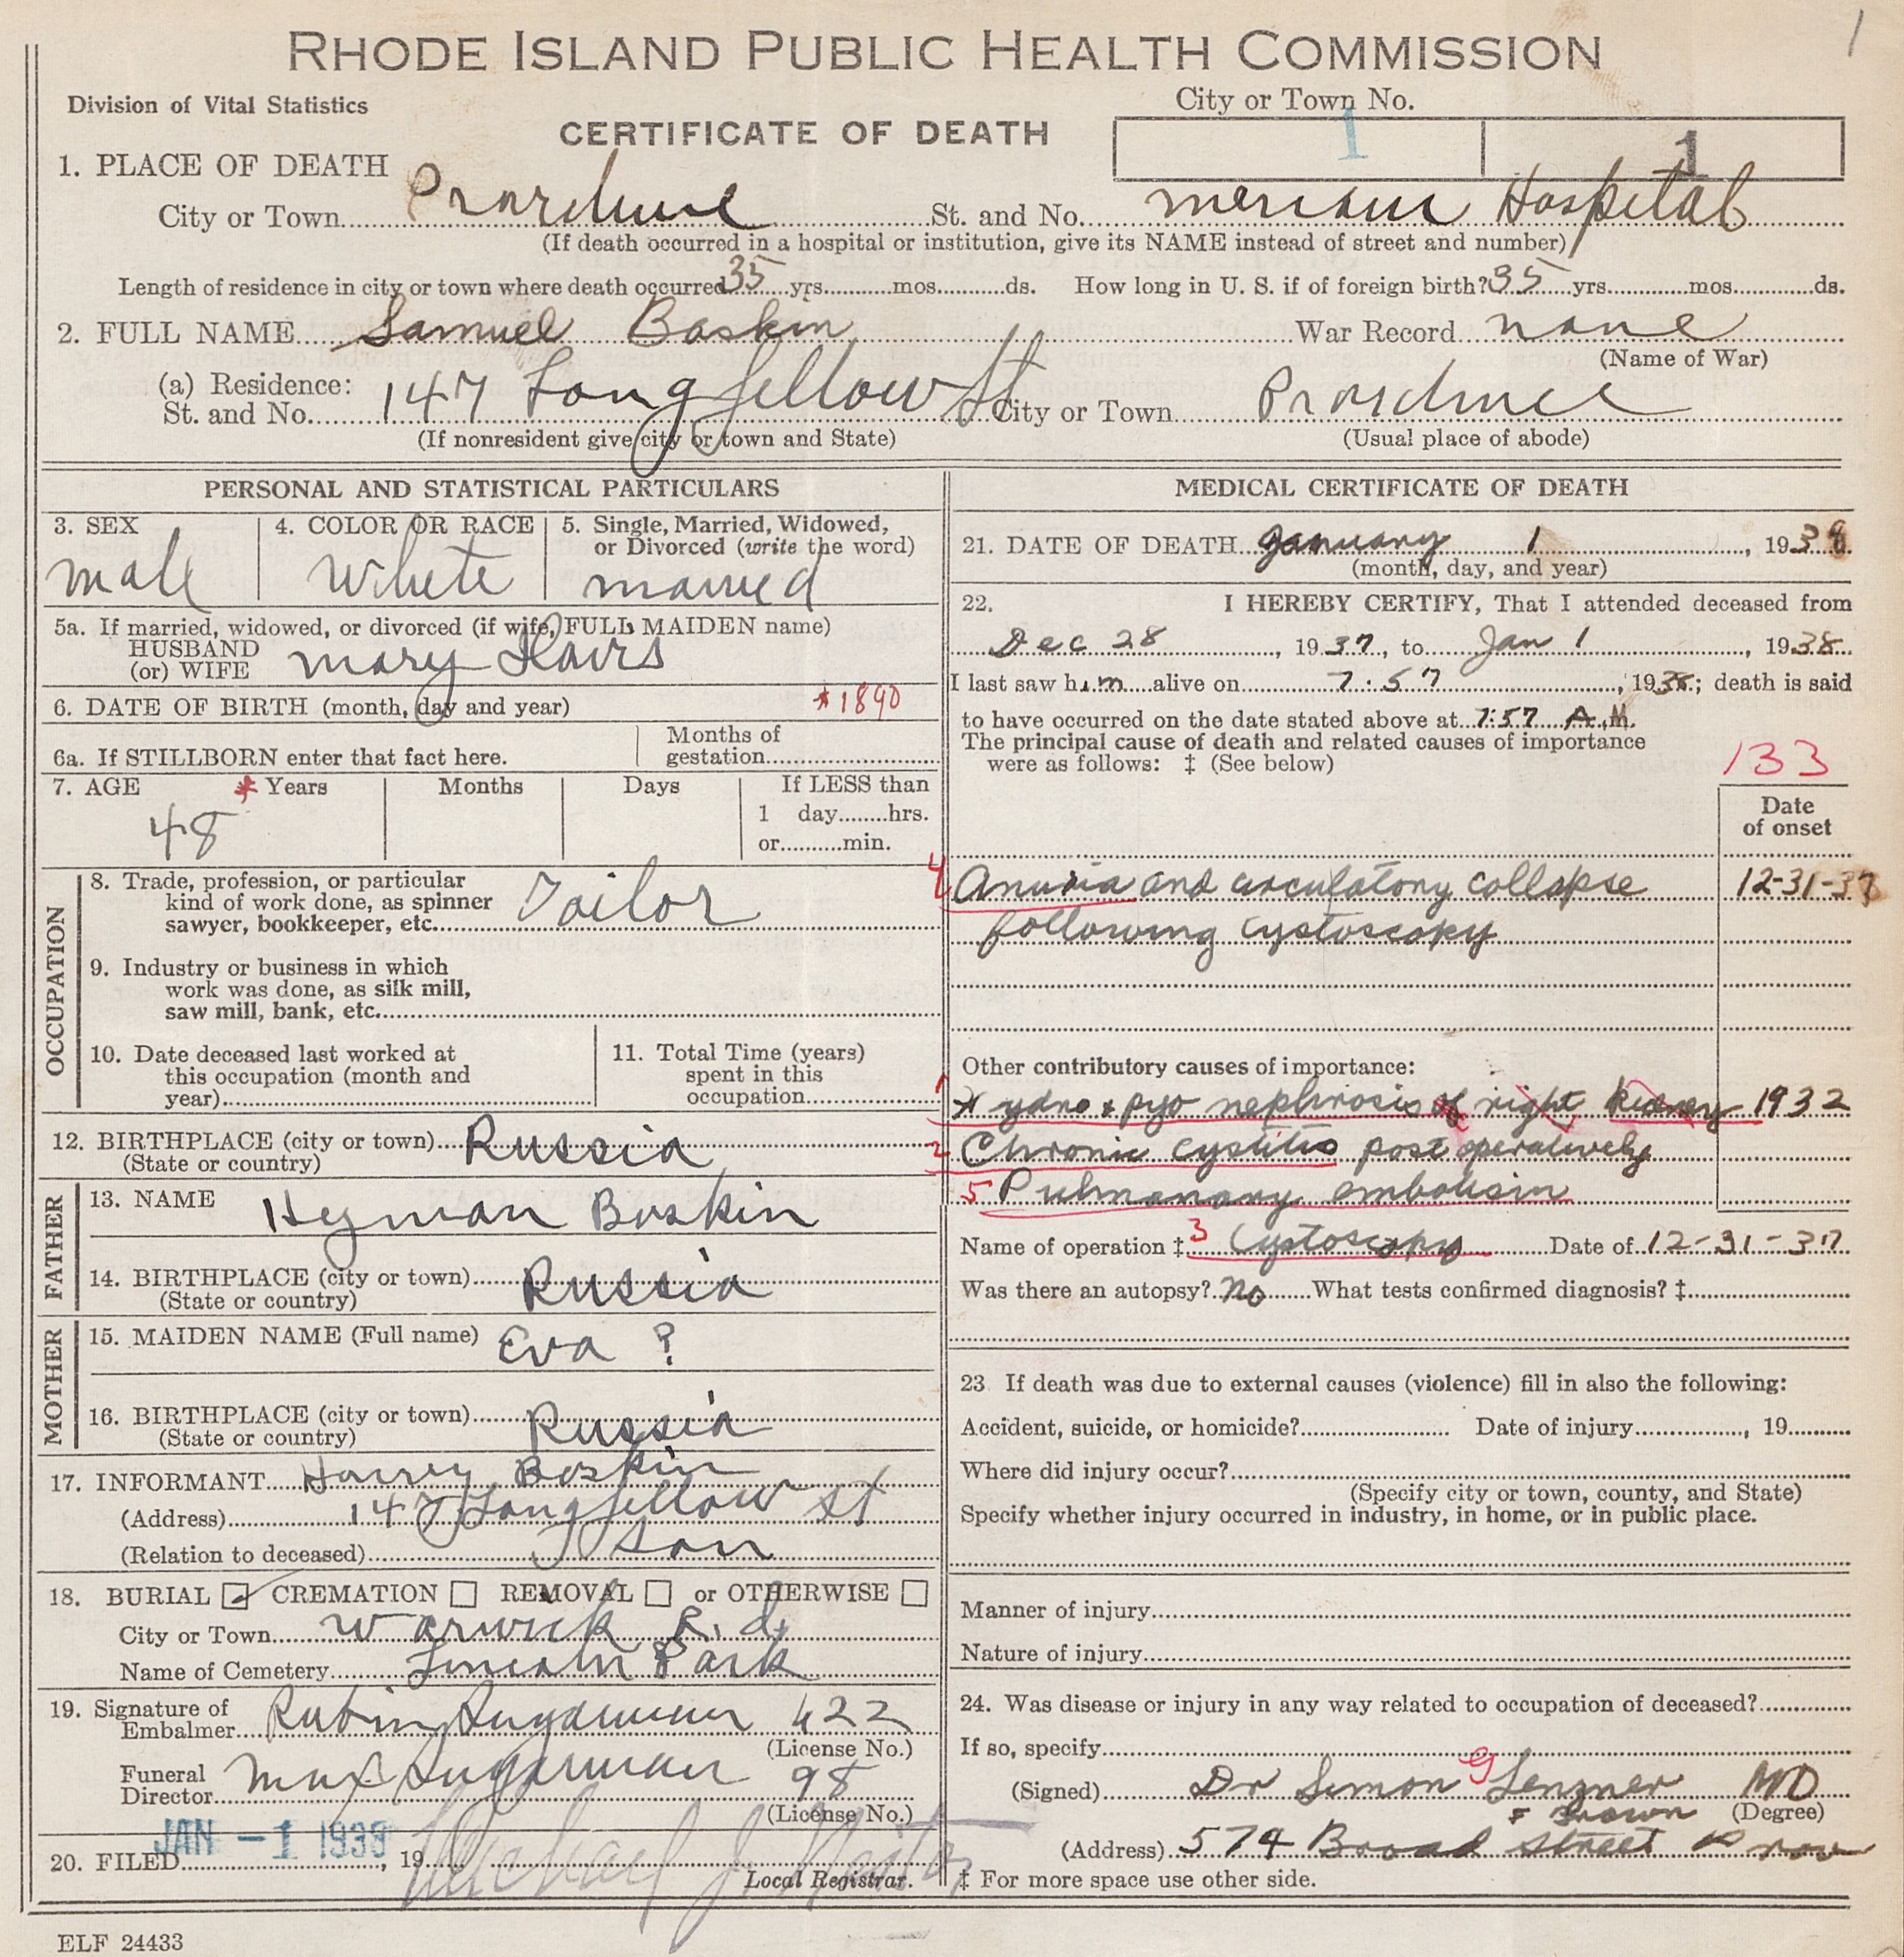 1
RHODE ISLAND PUBLIC HEALTH COMMISSION
Division of Vital Statistics
City or Town No.
CERTIFICATE OF DEATH
1 1
1. PLACE OF DEATH
City or Town Providence St. and No. Miriam Hospital
(If death occurred in a hospital or institution, give its NAME instead of street and number)
Length of residence in city or town where death occurred 35 yrs. mos. ds. How long in U. S. if of foreign birth? 35 yrs. mos. ds.
2. FULL NAME Samuel Boskin War Record none
(Name of War)
(a) Residence:
St. and No. 147 Longfellow St City or Town Providence
(If nonresident give city or town and State) (Usual place of abode)
PERSONAL AND STATISTICAL PARTICULARS
3. SEX 4. COLOR OR RACE 5. Single, Married, Widowed,
or Divorced (write the word)
male White married
5a. If married, widowed, or divorced (if wife, FULL MAIDEN name)
HUSBAND
(or) WIFE mary
6. DATE OF BIRTH (month, day and year) *1890
6a. If STILLBORN enter that fact here. Months of
gestation
7. AGE * Years Months Days If LESS than
1 day hrs.
or min.
48
OCCUPATION
8. Trade, profession, or particular
kind of work done, as spinner
sawyer, bookkeeper, etc. Tailor
9. Industry or business in which
work was done, as silk mill,
saw mill, bank, etc.
10. Date deceased last worked at
this occupation (month and
year)
11. Total Time (years)
spent in this
occupation
12. BIRTHPLACE (city or town) Russia
(State or country)
FATHER
13. NAME Hyman Boskin
14. BIRTHPLACE (city or town) Russia
(State or country)
MOTHER
15. MAIDEN NAME (Full name) Eva ?
16. BIRTHPLACE (city or town) Russia
(State or country)
17. INFORMANT Harry Boskin
(Address) 147 Longfellow St
(Relation to deceased) Son
18. BURIAL CREMATION REMOVAL or OTHERWISE
City or Town Warwick R. I.
Name of Cemetery Lincoln Park
19. Signature of
Embalmer Rubin Sugarman 422
(License No.)
Funeral
Director Max Sugarman 98
(License No.)
JAN -1 1938
20. FILED , 19 Michael J.
Local Registrar.
ELF 24433
MEDICAL CERTIFICATE OF DEATH
21. DATE OF DEATH January 1, 1938
(month, day, and year)
22. I HEREBY CERTIFY, That I attended deceased from
Dec 28, 1937, to Jan 1, 1938
I last saw him alive on 7:57, 1938; death is said
to have occurred on the date stated above at 7:57 A.M.
The principal cause of death and related causes of importance
were as follows: ‡ (See below)
133
Date
of onset
4 Anuria and circulatory collapse 12-31-37
following cystoscopy
Other contributory causes of importance:
1 Hydro & pyo nephrosis of right kidney 1932
2 Chronic cystitis post operatively
5 Pulmonary embolism
Name of operation ‡ 3 Cystoscopy Date of 12-31-37
Was there an autopsy? No What tests confirmed diagnosis? ‡
23 If death was due to external causes (violence) fill in also the following:
Accident, suicide, or homicide? Date of injury , 19
Where did injury occur?
(Specify city or town, county, and State)
Specify whether injury occurred in industry, in home, or in public place.
Manner of injury
Nature of injury
24. Was disease or injury in any way related to occupation of deceased?
If so, specify
(Signed) Dr Simon G Lenzner MD
(Degree)
& Brown
(Address) 574 Broad Street Prov
‡ For more space use other side.